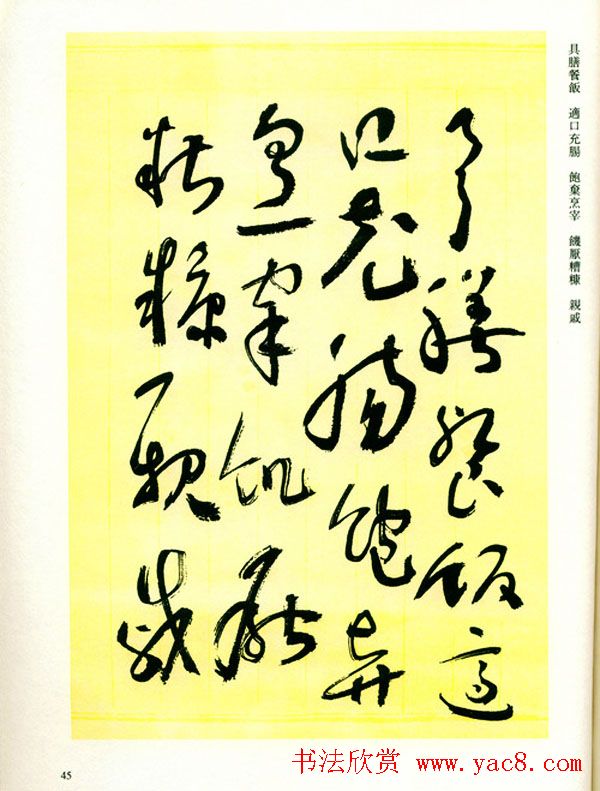 具膳餐飯 適口充腸 飽棄烹宰 饑厭糟糠 親戚
具膳餐飯適
口充腸飽棄
烹宰飢厭
糟糠親戚
45
书法欣赏 www.yac8.com